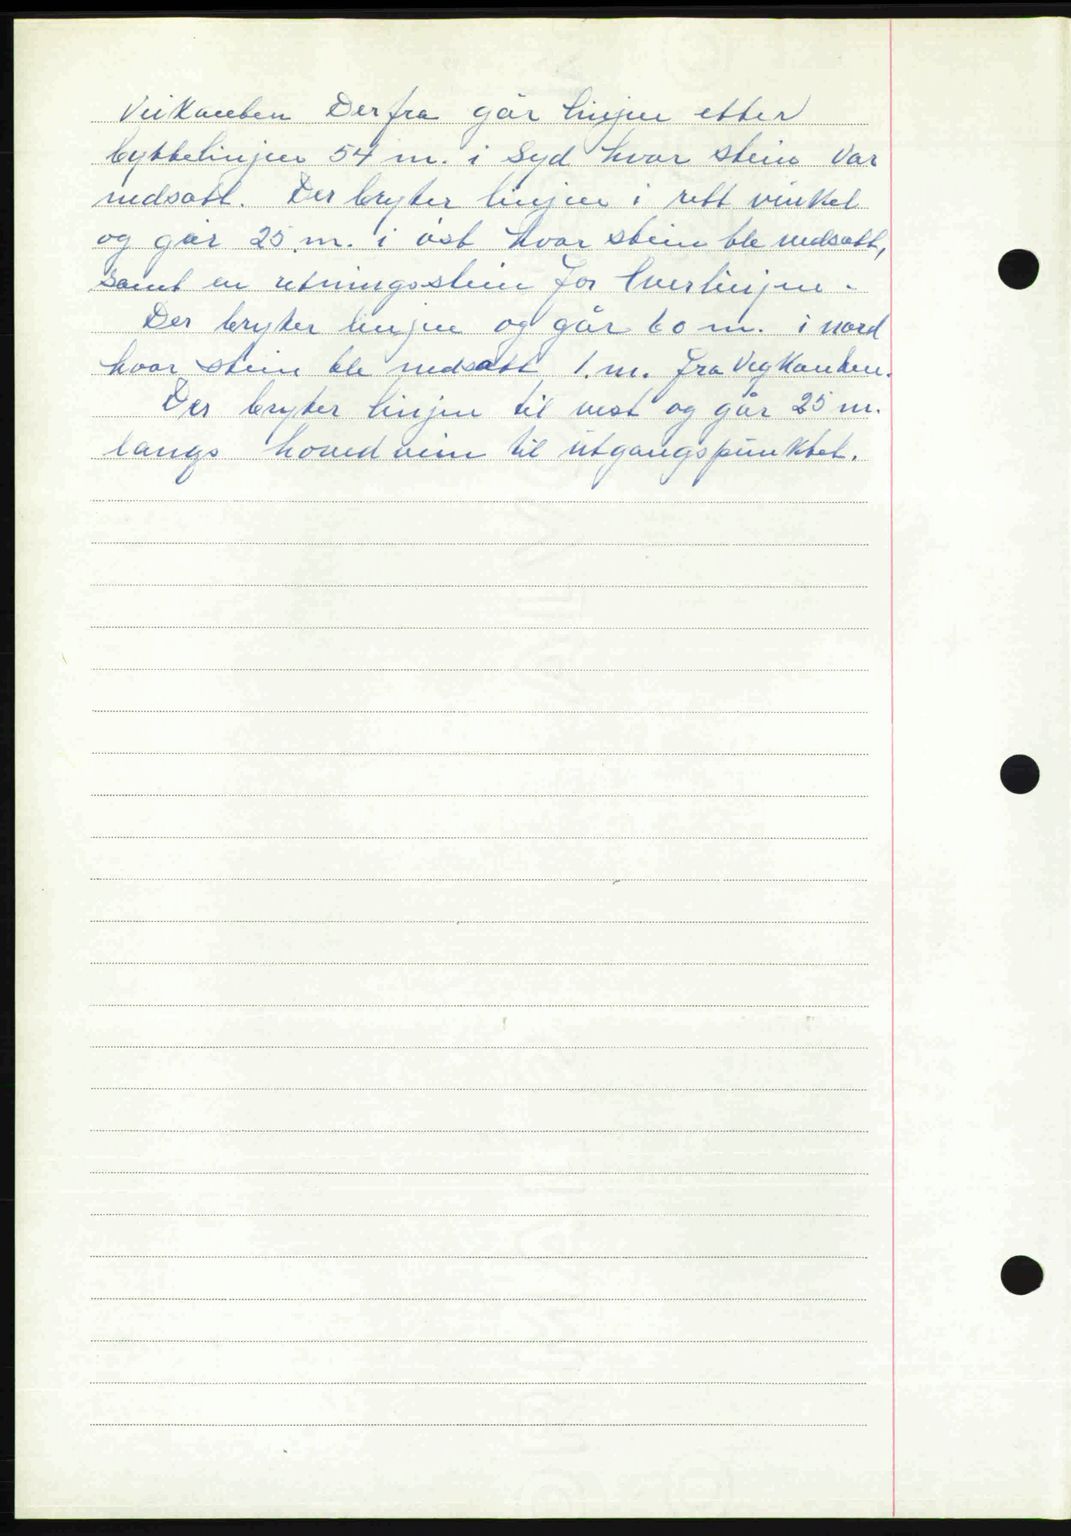 Veikanten Derfra går linjen etter
byttelinjen 54 m. i Syd hvor stein var
nedsatt. Der bryter linjen i rett vinkel
og går 25 m. i øst hvor stein ble nedsatt,
samt en retningsstein for tverlinjen.
Der bryter linjen og går 60 m. i nord
hvor stein ble nedsatt 1. m. fra Vegkanten.
Der bryter linjen til vest og går 25 m.
langs hovedveien til utgangspunktet.